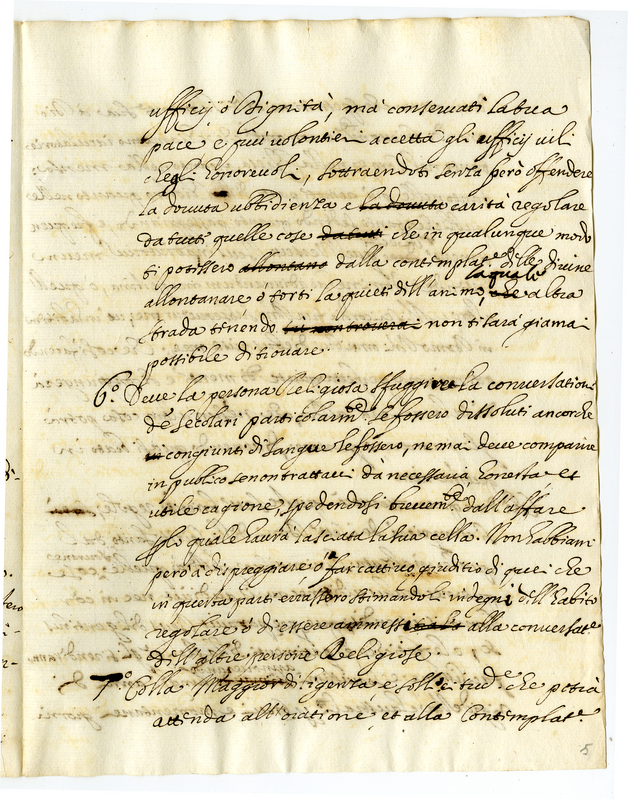 ufficij ò Dignità, mà conservati la tua
pace e più volontieri accetta gli ufficij vili
che gli honorevoli, sottraendoti senza però offendere
la dovuta ubbidienza e la dovuta carità regolare
da tutti quelle cose da tutti che in qualunque modo
ti potessero allontane dalla contemplat.e delle divine
allontanare ò torti la quiete dell'animo, la quale che altra
strada tenendo non ti sarà giamai
possibile di trovare.
6.° Deve la persona Religiosa sfuggire la conversatione
de secolari particolarm.te se fossero dissoluti ancorche
congiunti di sangue le fossero, ne mai deve comparire
in publico se non trattavi dà necessaria honesta et
utile cagione, spedendosi brevem.te dall'affare
p lo quale haurà lasciata la sua cella. Non habbiam
però à dispreggiare ò far cattivo giuditio di quei che
in questa parti errassero stimandoli indegni dell'habito
regolare ò di essere ammessi alla conversat.e
dell'altre persone Religiose.
7.° Colla Maggior diligenza e sollecitud.e che potrà
attenda all'oratione, et alla Contemplat.e
5